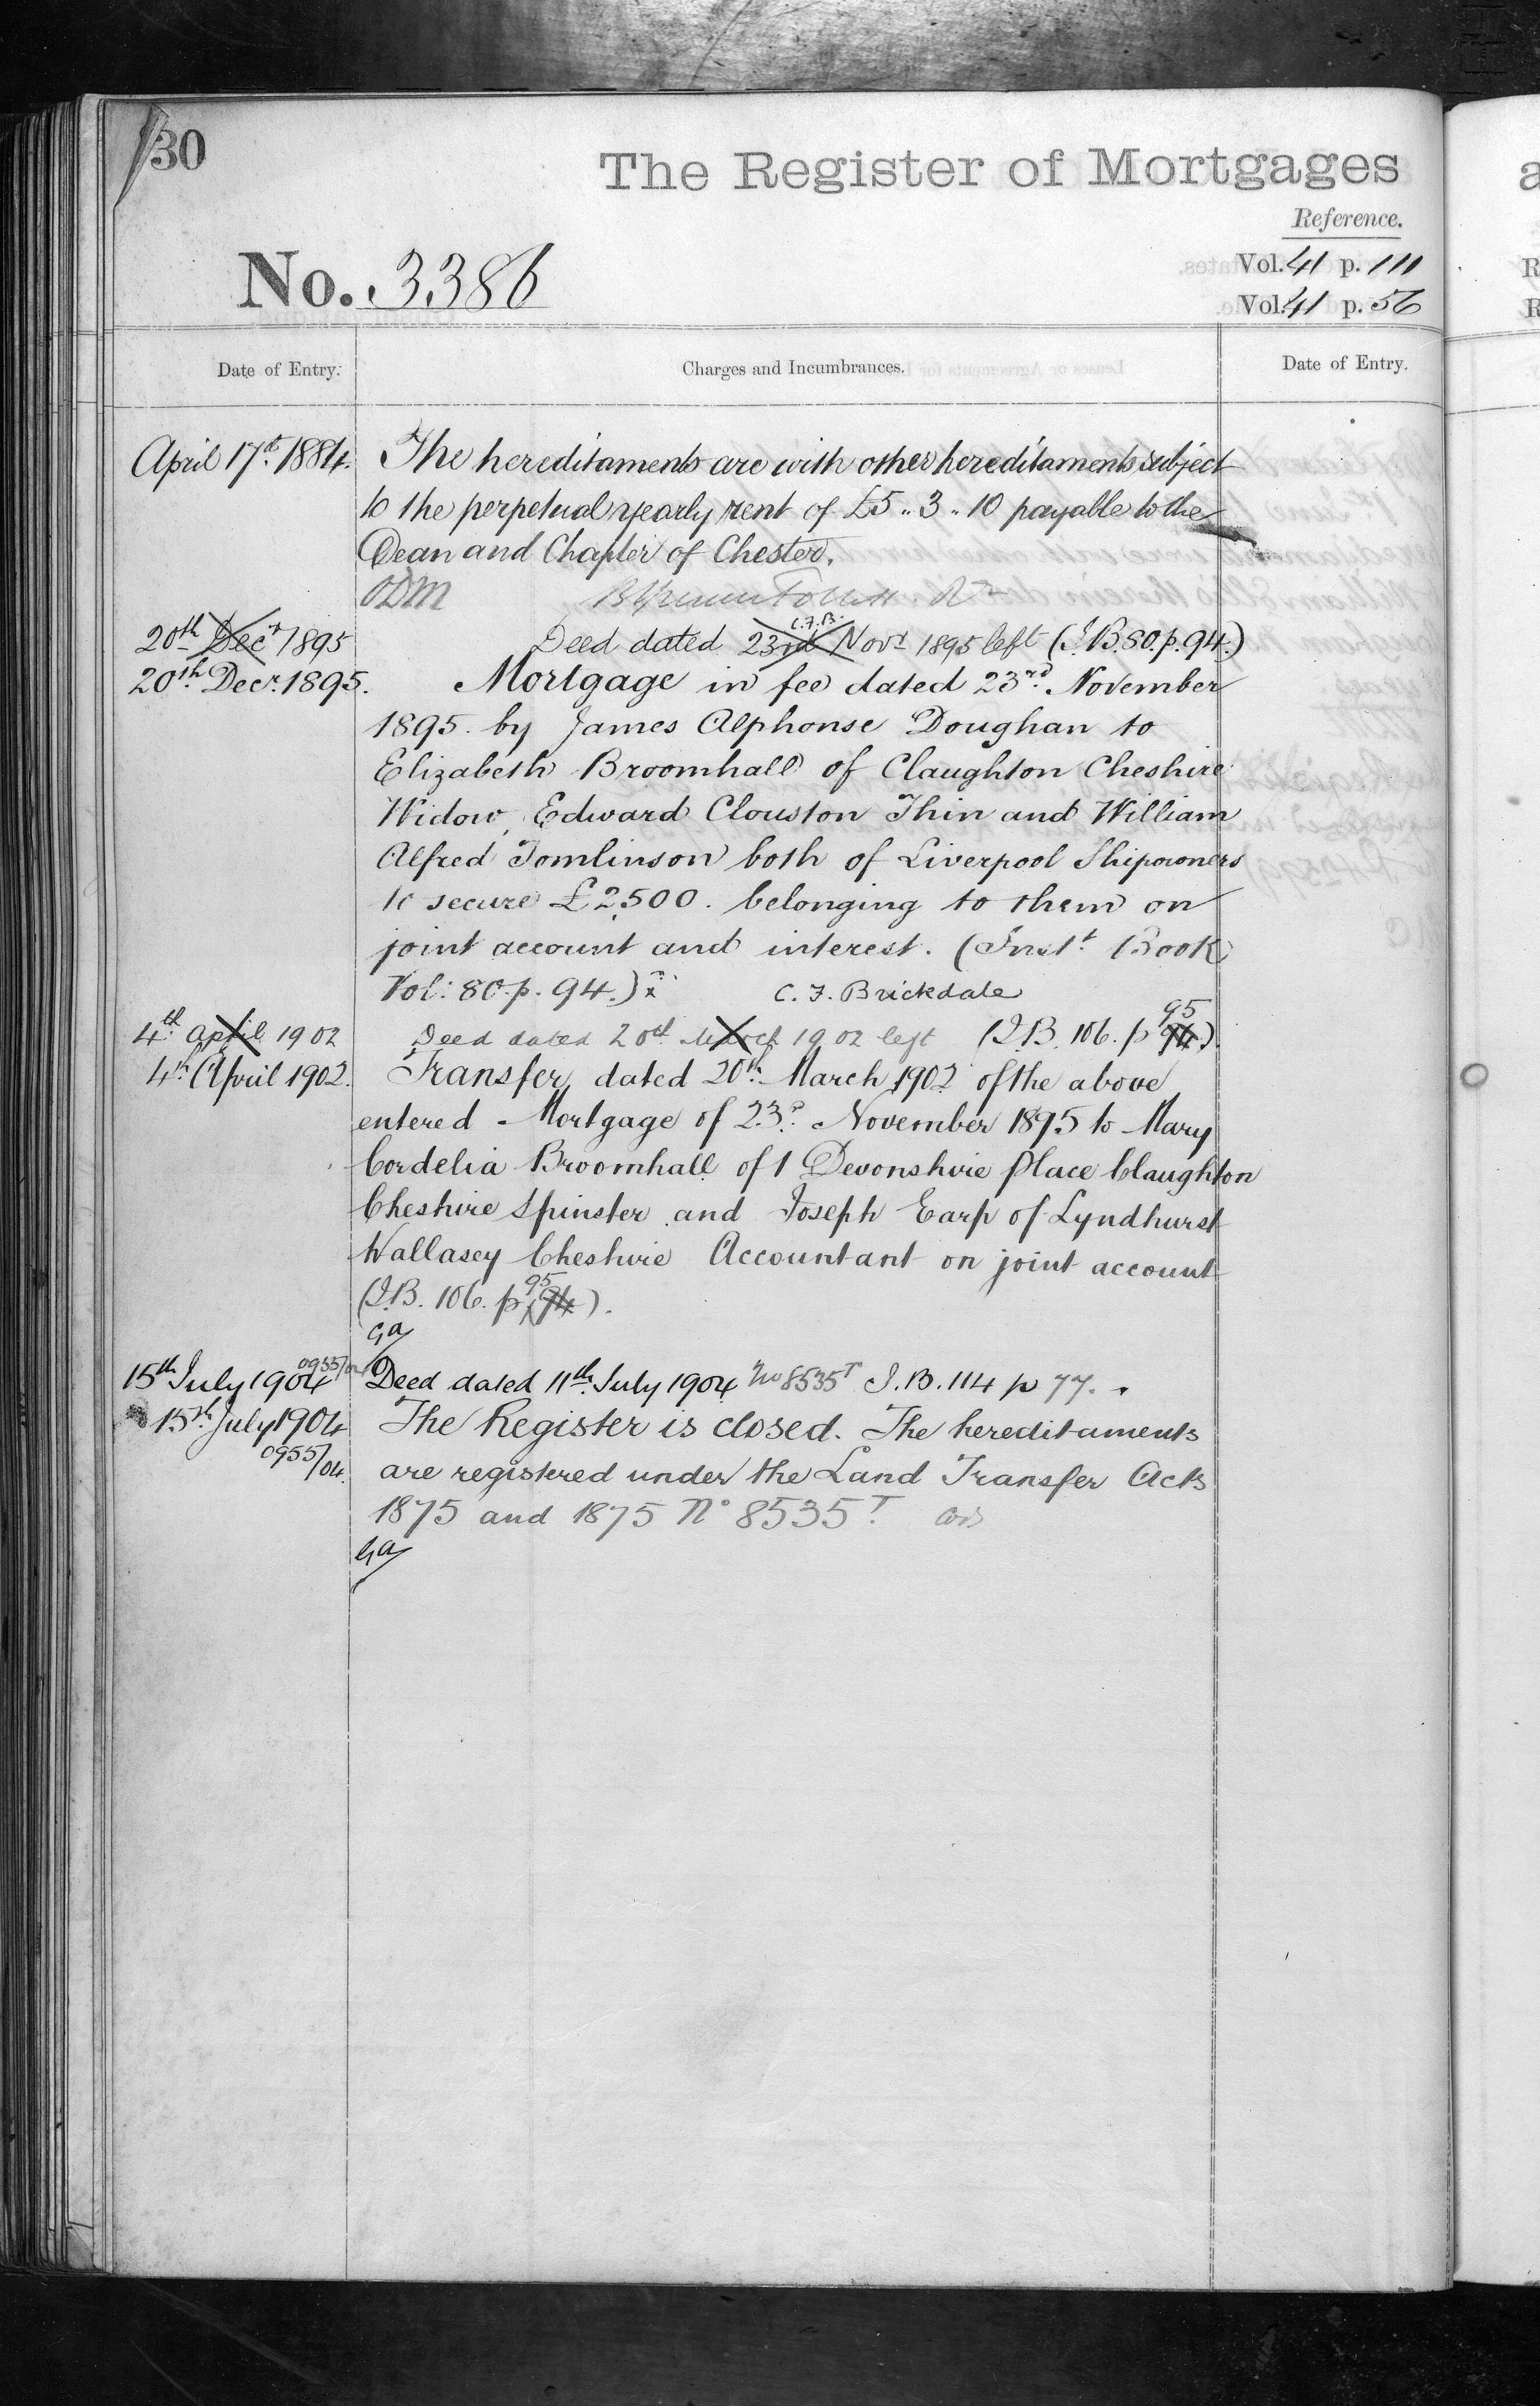 30
The Register of Mortgages
Reference.
No. 3386
Vol. 41 p. 111
Vol. 41 p. 56
Date of Entry. Charges and Incumbrances. Date of Entry.
April 17th 1884. The hereditaments are with other hereditaments subject
to the perpetual yearly rent of £5..3..10 payable to the
Dean and Chapter of Chester.
ODM
C.F.B.
20th Decr 1895 Deed dated 23rd Novr 1895 left (I.B. 80. p. 94.)
20th Decr. 1895. Mortgage in fee dated 23rd November
1895. by James Alphonse Doughan to
Elizabeth Broomhall of Claughton Cheshire
Widow, Edward Clouston Thin and William
Alfred Tomlinson both of Liverpool Shipowners
to secure £2,500. belonging to them on
joint account and interest. (Inst. Book
Vol: 80. p. 94.) C. F. Brickdale
4th April 1902 Deed dated 20th March 1902 left (I.B. 106. p 94 95).
4th April 1902. Transfer dated 20th March 1902 of the above
entered Mortgage of 23rd November 1895 to Mary
Cordelia Broomhall of 1 Devonshire Place Claughton
Cheshire Spinster and Joseph Earp of Lyndhurst
Wallasey Cheshire Accountant on joint account
(I.B. 106. p 94 95).
Ga
15th July 1904 0955/04 Deed dated 11th July 1904 No 8535T I.B. 114 p 77.
15th July 1904 The Register is closed. The hereditaments
0955/04. are registered under the Land Transfer Acts
1875 and 1875 No 8535T.
Ga